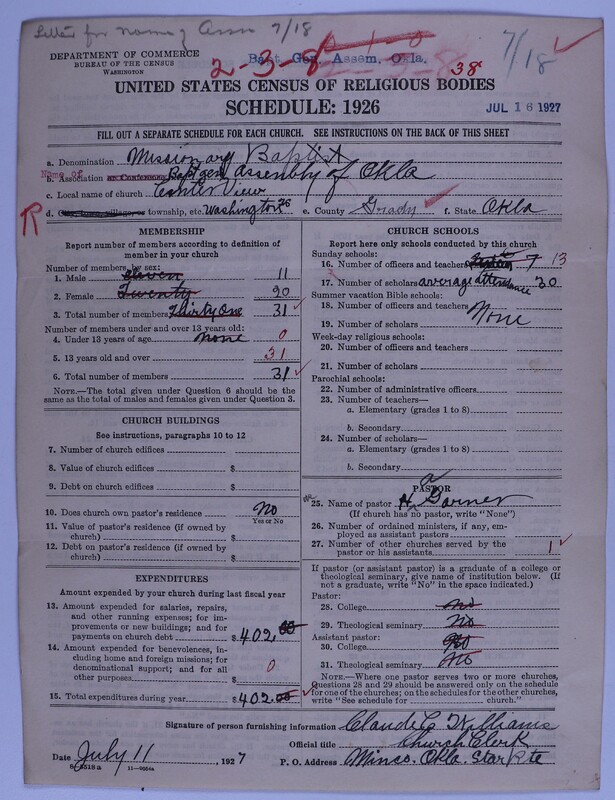 Letter for name of Assn 7/18
DEPARTMENT OF COMMERCE
BUREAU OF THE CENSUS
WASHINGTON
Bapt. Gen. Assem. Okla.
2-3-8
38
7/18
UNITED STATES CENSUS OF RELIGIOUS BODIES
SCHEDULE: 1926
JUL 16 1927
FILL OUT A SEPARATE SCHEDULE FOR EACH CHURCH. SEE INSTRUCTIONS ON THE BACK OF THIS SHEET
a. Denomination Missionary Baptist
Name of
b. Association or Conference Bapt gen assembly of Okla
c. Local name of church Center View
R d. City, town, village, or township, etc. Washington e. County Grady f. State Okla
MEMBERSHIP
Report number of members according to definition of member in your church
Number of members by sex:
1. Male eleven 11
2. Female Twenty 20
3. Total number of members Thirty One 31
Number of members under and over 13 years old:
4. Under 13 years of age none 0
5. 13 years old and over 31
6. Total number of members 31
NOTE.—The total given under Question 6 should be the same as the total of males and females given under Question 3.
CHURCH BUILDINGS
See instructions, paragraphs 10 to 12
7. Number of church edifices
8. Value of church edifices $
9. Debt on church edifices $
10. Does church own pastor's residence? No
Yes or No
11. Value of pastor's residence (if owned by church) $
12. Debt on pastor's residence (if owned by church) $
EXPENDITURES
Amount expended by your church during last fiscal year
13. Amount expended for salaries, repairs, and other running expenses; for improvements or new buildings; and for payments on church debt $ 402.00
14. Amount expended for benevolences, including home and foreign missions; for denominational support; and for all other purposes $ 0
15. Total expenditures during year $ 402.00
CHURCH SCHOOLS
Report here only schools conducted by this church
Sunday schools:
16. Number of officers and teachers 7 13
17. Number of scholars average attendance 30
Summer vacation Bible schools:
18. Number of officers and teachers None
19. Number of scholars
Week-day religious schools:
20. Number of officers and teachers
21. Number of scholars
Parochial schools:
22. Number of administrative officers
23. Number of teachers—
a. Elementary (grades 1 to 8)
b. Secondary
24. Number of scholars—
a. Elementary (grades 1 to 8)
b. Secondary
PASTOR
25. Name of pastor H. a Garner
(If church has no pastor, write "None")
26. Number of ordained ministers, if any, employed as assistant pastors
27. Number of other churches served by the pastor or his assistants 1
If pastor (or assistant pastor) is a graduate of a college or theological seminary, give name of institution below. (If not a graduate, write "No" in the space indicated.)
Pastor:
28. College No
29. Theological seminary No
Assistant pastor:
30. College No
31. Theological seminary No
NOTE.—Where one pastor serves two or more churches, Questions 28 and 29 should be answered only on the schedule for one of the churches; on the schedules for the other churches, write "See schedule for church."
Signature of person furnishing information Claude L Williams
Official title Church Clerk
Date July 11 1927 P. O. Address Minco. Okla. Star Rte